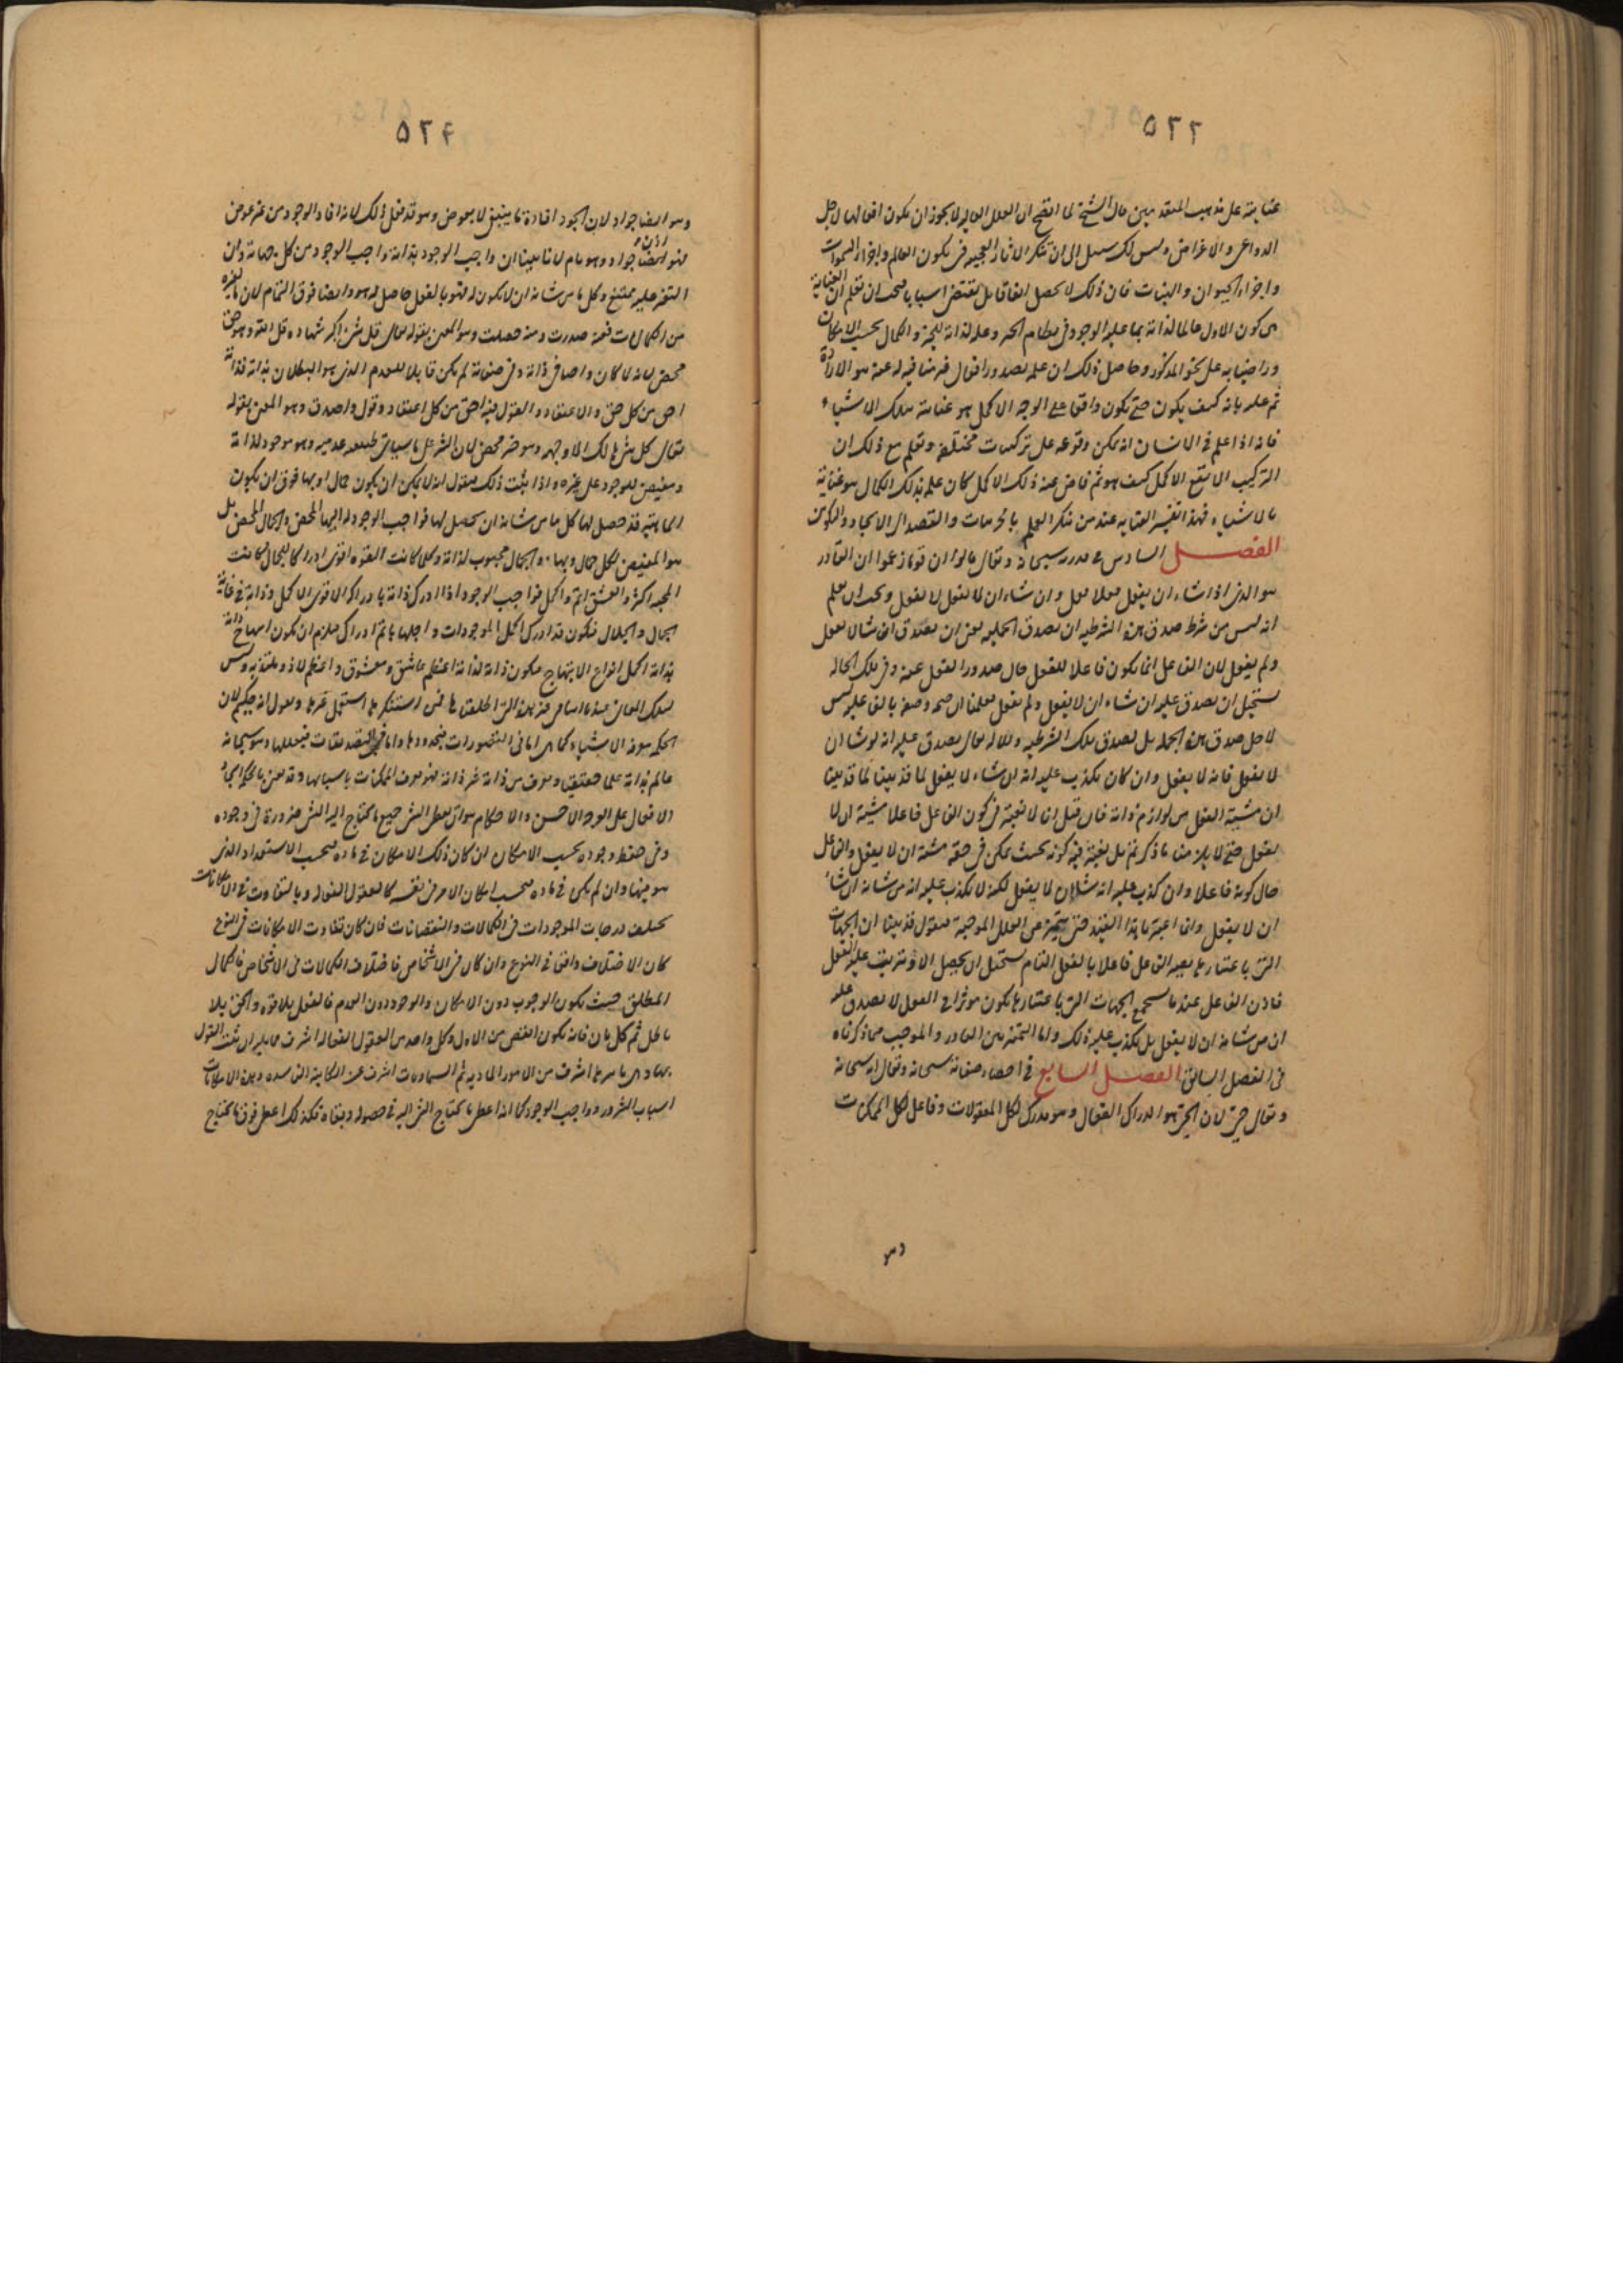 ٥٢٣
عنايته على مذهب المتقدمين قال الشيخ لما اتضح ان العلل العاليه لا يجوز ان يكون افعالها لاجل
الدواعى والاغراض وليس لك سبيل الى ان تنكر الاثار العجيبه فى تكون العالم واجزاء السموات
واجزاء الحيوان والنبات فان ذلك لا يحصل اتفاقا بل يقتضى اسبابا فيجب ان تعلم ان العناية
هى كون الاول عالما لذاته بما عليه الوجود فى نظام الخير وعلة لذاته للخير والكمال بحسب الامكان
وراضيا به على نحو المذكور وحاصل ذلك ان علمه بصدور افعال غير منافيه له عنه هو الارادة
ثم علمه بانه كيف يكون حتى يكون واقعا على الوجه الاكمل هو عنايته بتلك الاشياء
فانه اذا علم فى الانسان انه يمكن وقوعه على تركيبات مختلفة وتعلم مع ذلك ان
التركيب الانفع الاكمل كيف هو ثم فاض عنه ذلك الاكمل كان علمه بذلك الكمال هو عناية
بالاشياء فهذا تفسير العنايه عند من ينكر العلم بالجزئيات والقصد الى الايجاد والتكوين
الفصل السادس فى قدرته سبحانه وتعالى قالوا ان قوما زعموا ان القادر
هو الذى اذا شاء ان يفعل فعلا فعل وان شاء ان لا يفعل لا يفعل ويجب ان يعلم
انه ليس من شرط صدق هذه الشرطيه ان يصدق الحمليه حتى ان يصدق انه شاء ففعل
ولم يفعل لان الفاعل انما يكون فاعلا للفعل حال صدور الفعل عنه وفى تلك الحاله
يستحيل ان يصدق عليه ان شاء ان لا يفعل ولم يفعل فعلمنا ان صحة وصفه بالفاعليه ليس
لاجل صدق هذه الجملة بل لصدق تلك الشرطيه والاله تعالى يصدق عليه انه لو شاء ان
لا يفعل فانه لا يفعل وان كان يكذب عليه انه ان شاء لا يفعل لما قد بينا
ان مشية الفعل من لوازم ذاته فان قيل انا لا نعتبر فى كون الفاعل فاعلا مشية ان لا
يفعل حتى لا يلزمنا ما ذكرتم بل نعتبر فيه كونه بحيث يمكن فى حقه مشية ان لا يفعل والفاعل
حال كونه فاعلا وان كذب عليه انه شاء ان لا يفعل لكنه لا يكذب عليه انه من شانه ان يشاء
ان لا يفعل وانما اعتبرنا هذا القيد حتى يتميز عن العلل الموجبة فنقول قد بينا ان الجهات
التى باعتبارها يصير الفاعل فاعلا بالفعل التام يستحيل ان يحصل الا ويترتب عليه الفعل
فاذن الفاعل عند ما يستجمع الجهات التى باعتبارها يكون مؤثرا فى الفعل لا يصدق عليه
ان من شانه ان لا يفعل بل يكذب عليه ذلك واما التميز بين القادر والموجب فما ذكرناه
فى الفصل السابق الفصل السابع فى احصاء صفاته سبحانه وتعالى انه سبحانه
وتعالى حى لان الحى هو الدراك الفعال وهو مدرك لكل المعقولات وفاعل لكل الممكنات
وهو
٥٢٤
وهو ايضا جواد لان الجود افادة ما ينبغى لا بعوض وهو قد فعل ذلك لانه افاد الوجود من غير عوض
فهو ايضا جواد وهو تام لانا بينا ان واجب الوجود بذاته واجب الوجود من كل جهاته وان
التغير عليه ممتنع وكل ما من شانه ان يكون له فهو بالفعل حاصل له وهو ايضا فوق التمام لان ما لغيره
من الكمالات فمنه صدرت ومنه حصلت وهو المعنى بقوله تعالى قل اى شئ اكبر شهادة قل الله وهو حق
محض لانه لا كان واجبا فى ذاته وفى صفاته لم يكن قابلا للعدم الذى هو البطلان بذاته فذاته
احق من كل حق والاعتقاد والقول فيه احق من كل اعتقاد وقول واصدق وهو المعنى بقوله
تعالى كل شئ هالك الا وجهه وهو خير محض لان الشر على ما سياتى طبيعه عدميه وهو موجود لذاته
ومفيض للوجود على غيره واذا ثبت ذلك فنقول انه لا يمكن ان يكون جمال او بهاء فوق ان يكون
الماهيه قد حصل لها كل ما من شانه ان يحصل لها فواجب الوجود له البهاء المحض والجمال المحض بل
هو المفيض لكل جمال وبهاء والجمال محبوب لذاته وكلما كانت القوه اقوى ادراكا للجمال كانت
المحبه اكثر والعشق اتم واكمل فواجب الوجود اذا ادرك ذاته بادراكه الاقوى الاكمل وذاته فى غاية
الجمال والجلال فيكون قد ادرك اكمل الموجودات واجلها باتم ادراك فيلزم ان يكون ابتهاج ذاته
بذاته اكمل انواع الابتهاج فيكون ذاته لذاته اعظم عاشق ومعشوق واعظم لاذ وملتذ به وليس
لتلك المعانى عندنا اسامى غير هذه التى اطلقناها فمن استنكرها استعمل غيرها ونقول انه حكيم لان
الحكمه معرفه الاشياء كما هى اما فى التصورات فبحدودها واما فى التصديقات فبعللها وهو سبحانه
عالم بذاته علما حقيقيا ويعرف من ذاته غير ذاته فهو يعرف الممكنات باسبابها وقد يعنى بالحكمه ايجاد
الافعال على الوجه الاحسن والاحكام هو ان يعطى الشئ جميع ما يحتاج اليه الشئ ضرورة فى وجوده
وفى حفظ وجوده بحسب الامكان ان كان ذلك الامكان فى ماده فبحسب الاستعداد الذى
هو فيها وان لم يكن فى ماده فبحسب امكان الامر فى نفسه كالعقول الفعاله وبالتفاوت فى الامكانات
تختلف درجات الموجودات فى الكمالات والنقصانات فان كان تفاوت الامكانات فى النوع
كان الاختلاف واقعا فى النوع وان كان فى الاشخاص فاختلاف الكمالات فى الاشخاص فالكمال
المطلق حيث يكون الوجوب دون الامكان والوجود دون العدم فالفعل بلا قوه والحق بلا
باطل ثم كل تال فانه يكون انقص من الاول وكل واحد من العقول الفعاله اشرف مما يليه ثم العقول
باسرها اشرف من الامور الماديه ثم السماويات اشرف من الكاينه الفاسده وهذه الامكانات
اسباب الشرور وواجب الوجود كما انه اعطى ما يحتاج الشئ اليه فى حصوله وبقاه فكذلك اعطى فوق ما يحتاج